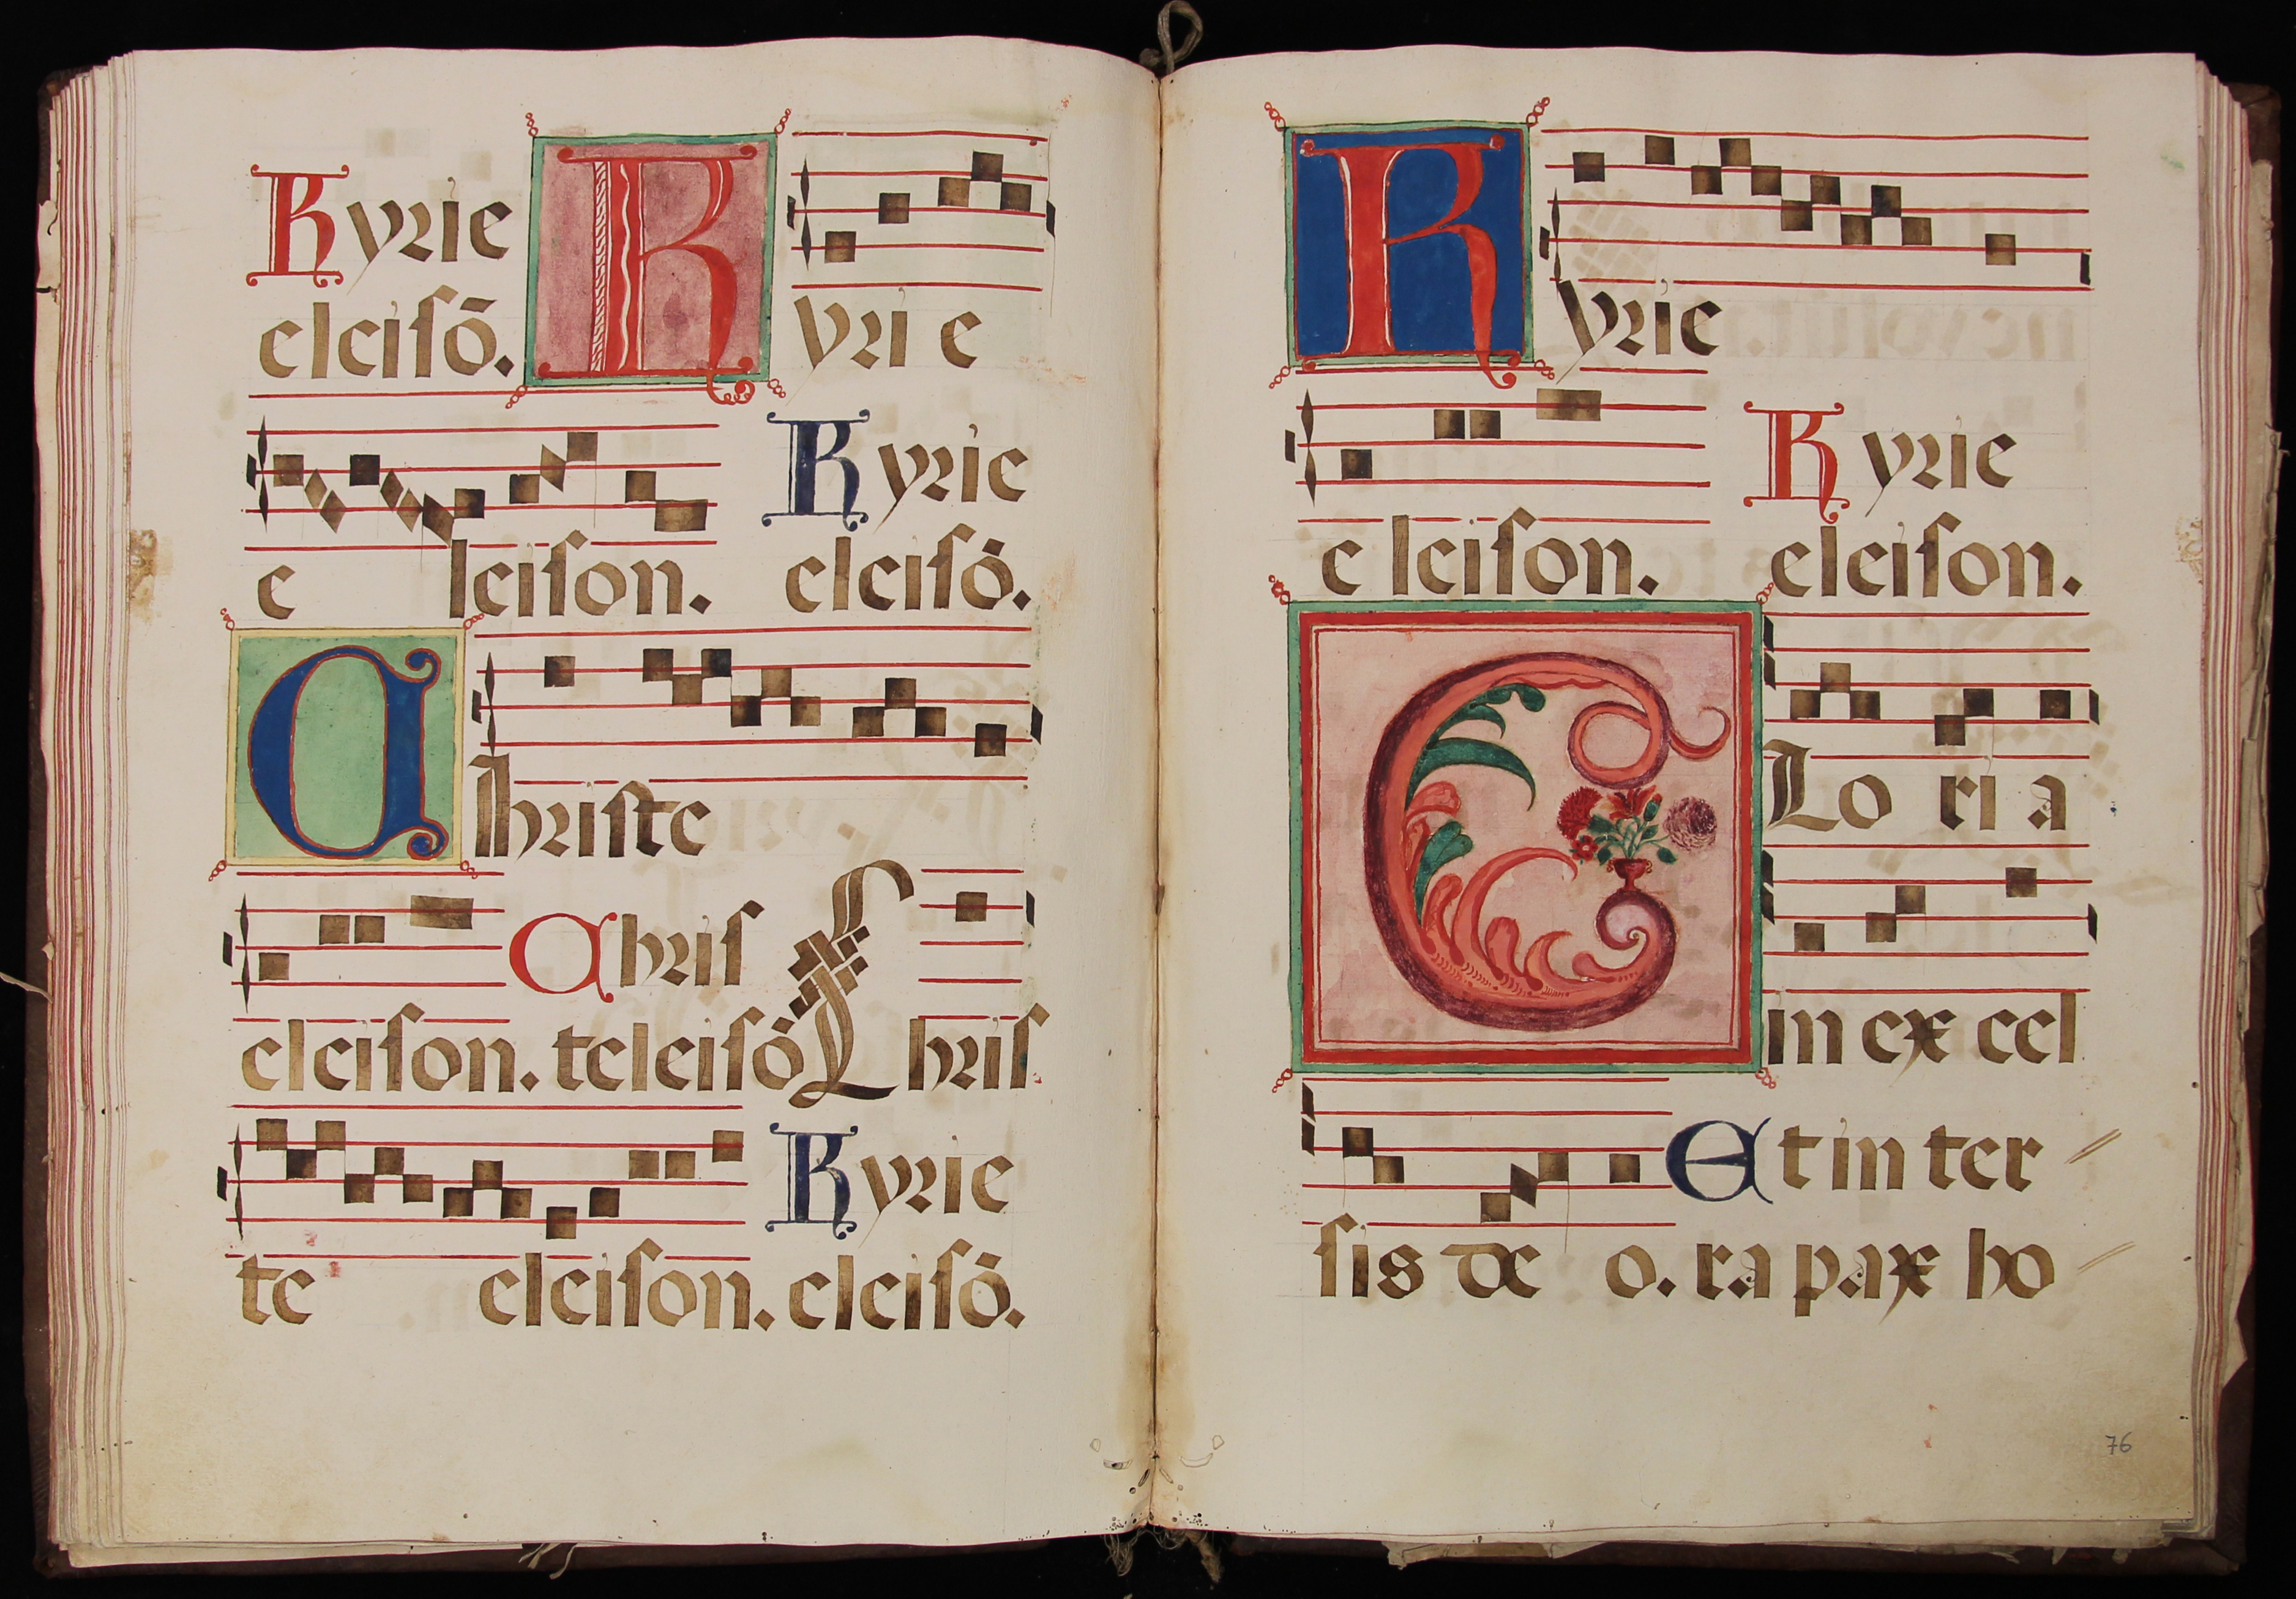 Kyrie Kyri e
eleiſō.
e leiſon. Kyrie
eleiſō.
Chriſte
eleiſon. Chriſ
teleiſō Chriſ
te eleiſon. Kyrie
eleiſō.
Kyrie
e leiſon. Kyrie
eleiſon.
GLo ri a
in ex cel
ſis de o. Et in ter
ra pax ho
76